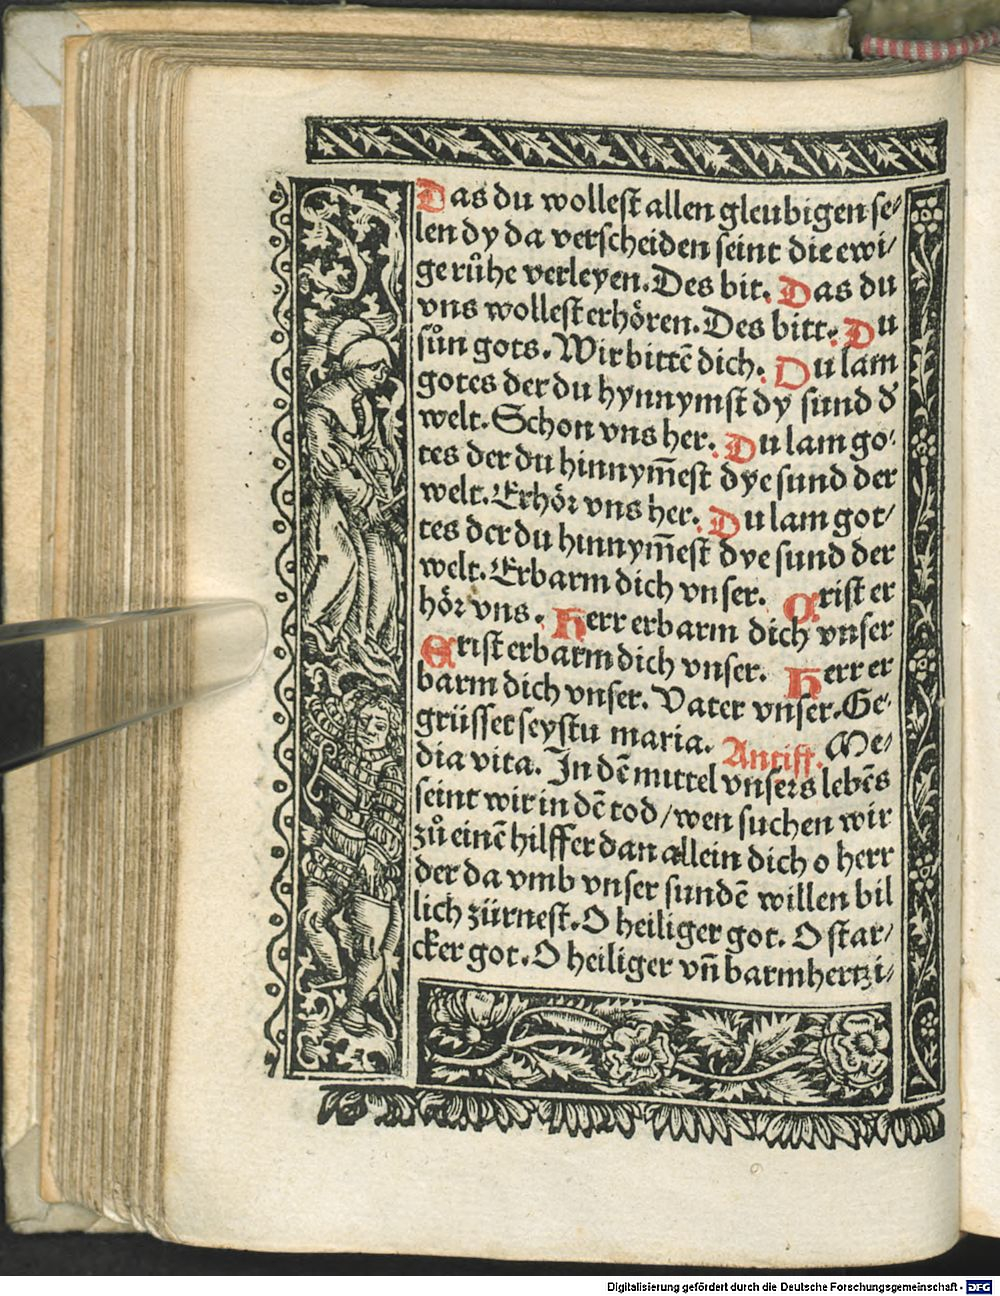 Das du wollest allen gleubigen se⸗
len dy da verscheiden seint die ewi⸗
ge růhe verleyen. Des bit. Das du
vns wollest erhören. Des bitt. Du
sůn gots. Wir bittē dich. Du lam
gotes der du hynnymst dy sund d̛
welt. Schon vns her. Du lam go⸗
tes der du hinnym̄est dye sund der
welt. Erhör vns her. Du lam got⸗
tes der du hinnym̄est dye sund der
welt. Erbarm dich vnser. Crist er
hör vns. Herr erbarm dich vnser
Crist erbarm dich vnser. Herr er
barm dich vnser. Vater vnser. Ge⸗
grüsset seystu maria. Antiff. Me⸗
dia vita. In dē mittel vnsers lebēs
seint wir in dē tod / wen suchen wir
zů einē hilffer dan allein dich o herr
der da vmb vnser sundē willen bil
lich zürnest. O heiliger got. O star⸗
cker got. O heiliger vn̄ barmhertzi⸗
Digitalisierung gefördert durch die Deutsche Forschungsgemeinschaft - DFG